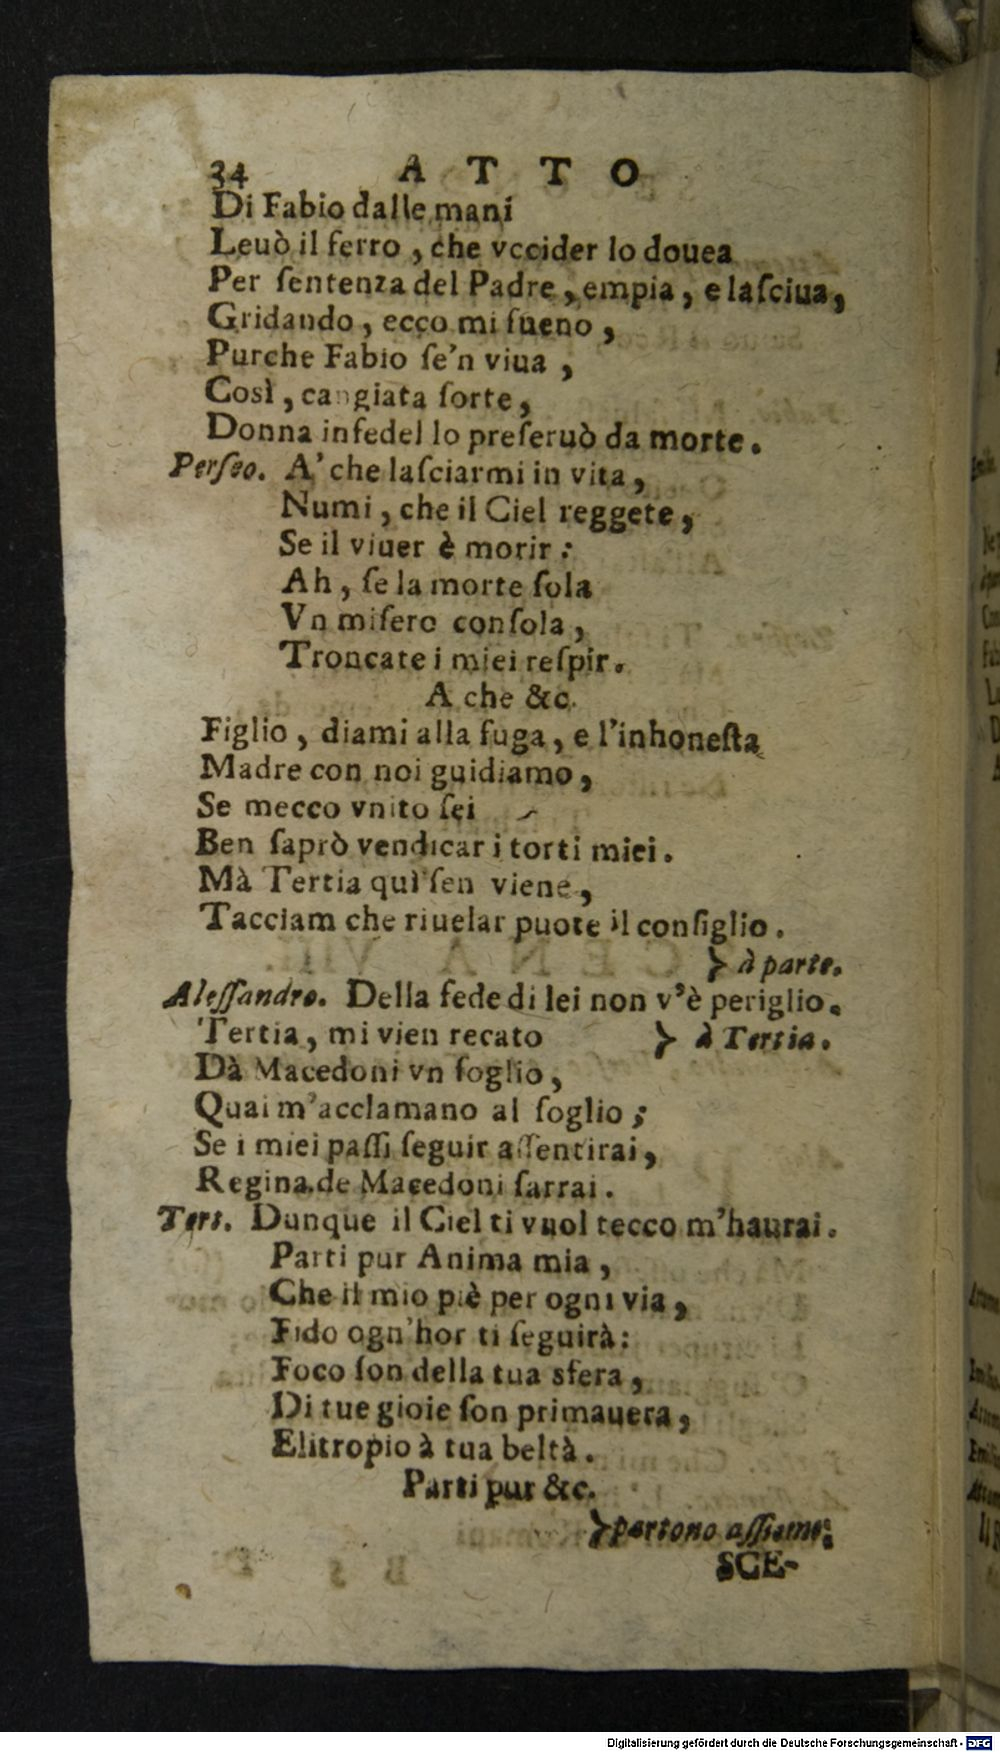 34 ATTO
Di Fabio dalle mani
Leuò il ferro, che vccider lo douea
Per ſentenza del Padre, empia, e laſciua,
Gridando, ecco mi ſueno,
Purche Fabio ſe'n viua,
Così, cangiata ſorte,
Donna infedel lo preſeruò da morte.
Perſeo. A' che laſciarmi in vita,
Numi, che il Ciel reggete,
Se il viuer è morir:
Ah, ſe la morte ſola
Vn miſero conſola,
Troncate i miei reſpir.
A che &c.
Figlio, diami alla fuga, e l'inhoneſta
Madre con noi guidiamo,
Se mecco vnito ſei
Ben ſaprò vendicar i torti miei.
Mà Tertia quì ſen viene,
Tacciam che riuelar puote il conſiglio.
} à parte.
Aleſſandro. Della fede di lei non v'è periglio.
Tertia, mi vien recato } à Tertia.
Dà Macedoni vn foglio,
Quai m'acclamano al ſoglio;
Se i miei paſſi ſeguir aſſentirai,
Regina de Macedoni ſarrai.
Tert. Dunque il Ciel ti vuol tecco m'haurai.
Parti pur Anima mia,
Che il mio piè per ogni via,
Fido ogn'hor ti ſeguirà:
Foco ſon della tua sfera,
Di tue gioie ſon primauera,
Elitropio à tua beltà.
Parti pur &c.
} partono aſſieme:
SCE-
Digitalisierung gefördert durch die Deutsche Forschungsgemeinschaft - DFG